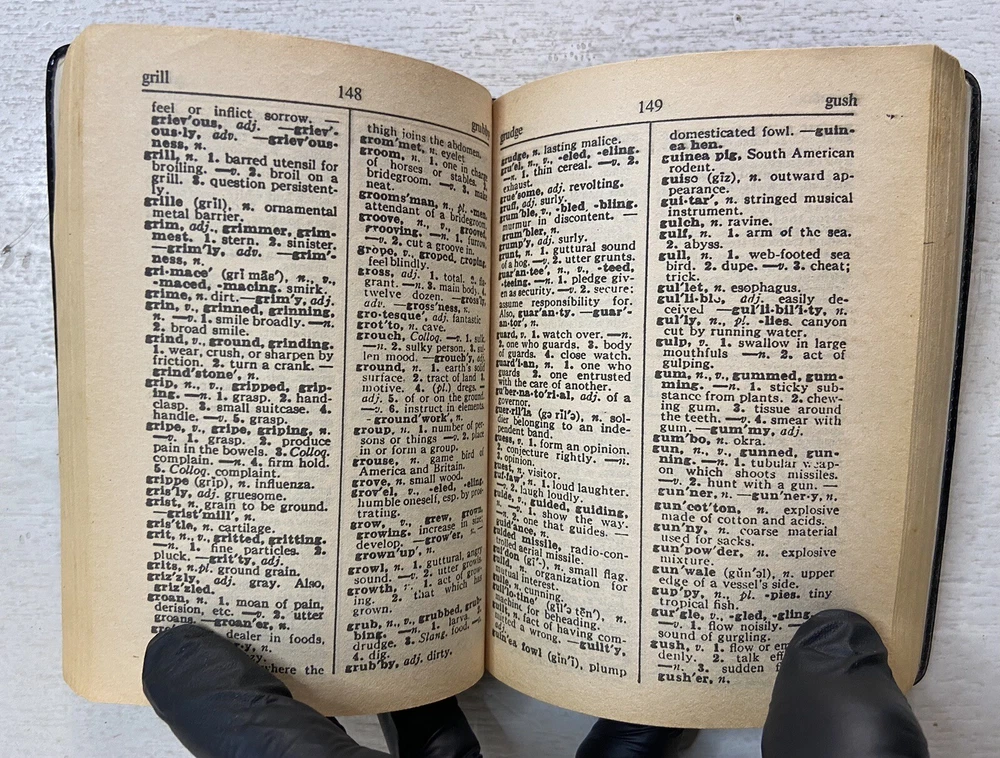 grill
148
grubby
feel or inflict sorrow. —
griev'ous, adj. —griev'-
ous·ly, adv. —griev'ous-
ness, n.
grill, n. 1. barred utensil for
broiling. —v. 2. broil on a
grill. 3. question persistent-
ly.
grille (grĭl), n. ornamental
metal barrier.
grim, adj., grimmer, grim-
mest. 1. stern. 2. sinister.
—grim'ly, adv. —grim'-
ness, n.
gri·mace' (grĭ mās'), n., v.,
-maced, -macing. smirk.
grime, n. dirt.—grim'y, adj.
n., v., grinned, grinning,
n. —v. 1. smile broadly. —n.
2. broad smile.
grind, v., ground, grinding.
1. wear, crush, or sharpen by
friction. 2. turn a crank. —
grind'stone', n.
grip, n., v., gripped, grip-
ping. —n. 1. grasp. 2. hand-
clasp. 3. small suitcase. 4.
handle. —v. 5. grasp.
gripe, v., griped, griping, n.
—v. 1. grasp. 2. produce
pain in the bowels. 3. Colloq.
complain. —n. 4. firm hold.
5. Colloq. complaint.
grippe (grĭp), n. influenza.
gris'ly, adj. gruesome.
grist, n. grain to be ground.
—grist'mill', n.
gris'tle, n. cartilage.
grit, n., v., gritted, gritting.
—n. 1. fine particles. 2.
pluck. —grit'ty, adj.
grits, n.pl. ground grain.
griz'zly, adj. gray. Also,
griz'zled.
groan, n. 1. moan of pain,
derision, etc. —v. 2. utter
groans. —groan'er, n.
dealer in foods,
where the
thigh joins the abdomen.
grom'met, n. eyelet.
groom, n. 1. one in charge
of horses or stables. 2.
bridegroom. —v. 3. make
neat.
grooms'man, n., pl. -men.
attendant of a bridegroom.
groove, n., v., grooved,
grooving. —n. 1. furrow.
—v. 2. cut a groove in.
grope, v., groped, groping.
feel blindly.
gross, adj. 1. total. 2. fla-
grant. —n. 3. main body. 4.
twelve dozen. —gross'ly,
adv. —gross'ness, n.
gro·tesque', adj. fantastic.
grot'to, n. cave.
grouch, Colloq. —v. 1. sulk.
—n. 2. sulky person. 3. sul-
len mood. —grouch'y, adj.
ground, n. 1. earth's solid
surface. 2. tract of land. 3.
motive. 4. (pl.) dregs. —
adj. 5. of or on the ground.
—v. 6. instruct in elements.
—ground'work', n.
group, n. 1. number of per-
sons or things —v. 2. place
in or form a group.
grouse, n. game bird of
America and Britain.
grove, n. small wood.
grov'el, v., -eled, -eling.
humble oneself, esp. by pros-
trating.
grow, v., grew, grown,
growing. increase in size;
develop. —grow'er, n. —
grown'up', n.
growl, n. 1. guttural, angry
sound. —v. 2. utter growls.
growth, n. 1. act of grow-
ing. 2. that which has
grown.
grub, n., v., grubbed, grub-
bing. —n. 1. larva. 2.
drudge. 3. Slang. food. —v.
4. dig.
grub'by, adj. dirty.
grudge
149
gush
grudge, n. lasting malice.
gru'el, n., v., -eled, -eling.
—n. 1. thin cereal. —v. 2.
exhaust.
grue'some, adj. revolting.
gruff, adj. surly.
grum'ble, v., -bled, -bling.
murmur in discontent. —
grum'bler, n.
grump'y, adj. surly.
grunt, n. 1. guttural sound
of a hog. —v. 2. utter grunts.
guar'an·tee', n., v., -teed,
-teeing. —n. 1. pledge giv-
en as security. —v. 2. secure;
assume responsibility for.
Also, guar'an·ty. —guar'-
an·tor', n.
guard, v. 1. watch over. —n.
2. one who guards. 3. body
of guards. 4. close watch.
guard'i·an, n. 1. one who
guards 2. one entrusted
with the care of another.
gu'ber·na·to'ri·al, adj. of a
governor.
guer·ril'la (gə rĭl'ə), n. sol-
dier belonging to an inde-
pendent band.
guess, v. 1. form an opinion.
2. conjecture rightly. —n.
3. opinion.
guest, n. visitor.
guf·faw', n. 1. loud laughter.
—v. 2. laugh loudly.
guide, v., guided, guiding,
n. —v. 1. show the way.
—n. 2. one that guides. —
guid'ance, n.
guided missile, radio-con-
trolled aerial missile.
gui'don (gī'-), n. small flag.
guild, n. organization for
mutual interest.
guile, n. cunning.
guil'lo·tine' (gĭl'ə tēn'), n.
machine for beheading.
guilt, n. fact of having com-
mitted a wrong. —guilt'y,
guin'ea fowl (gĭn'ĭ), plump
domesticated fowl. —guin-
ea hen.
guinea pig, South American
rodent.
guise (gīz), n. outward ap-
pearance.
gui·tar', n. stringed musical
instrument.
gulch, n. ravine.
gulf, n. 1. arm of the sea.
2. abyss.
gull, n. 1. web-footed sea
bird. 2. dupe. —v. 3. cheat;
trick.
gul'let, n. esophagus.
gul'li·ble, adj. easily de-
ceived —gul'li·bil'i·ty, n.
gul'ly, n., pl. -lies. canyon
cut by running water.
gulp, v. 1. swallow in large
mouthfuls —n. 2. act of
gulping.
gum, n., v., gummed, gum-
ming. —n. 1. sticky sub-
stance from plants. 2. chew-
ing gum. 3. tissue around
the teeth. —v. 4. smear with
gum. —gum'my, adj.
gum'bo, n. okra.
gun, n., v., gunned, gun-
ning. —n. 1. tubular weap-
on which shoots missiles.
—v. 2. hunt with a gun. —
gun'ner, n. —gun'ner·y, n.
gun'cot'ton, n. explosive
made of cotton and acids.
gun'ny, n. coarse material
used for sacks.
gun'pow'der, n. explosive
mixture.
gun'wale (gŭn'əl), n. upper
edge of a vessel's side.
gup'py, n., pl. -pies. tiny
tropical fish.
gur'gle, v., -gled, -gling,
—v. 1. flow noisily. —
sound of gurgling.
gush, v. 1. flow or
denly. 2. talk
—n. 3. sudden
gush'er, n.